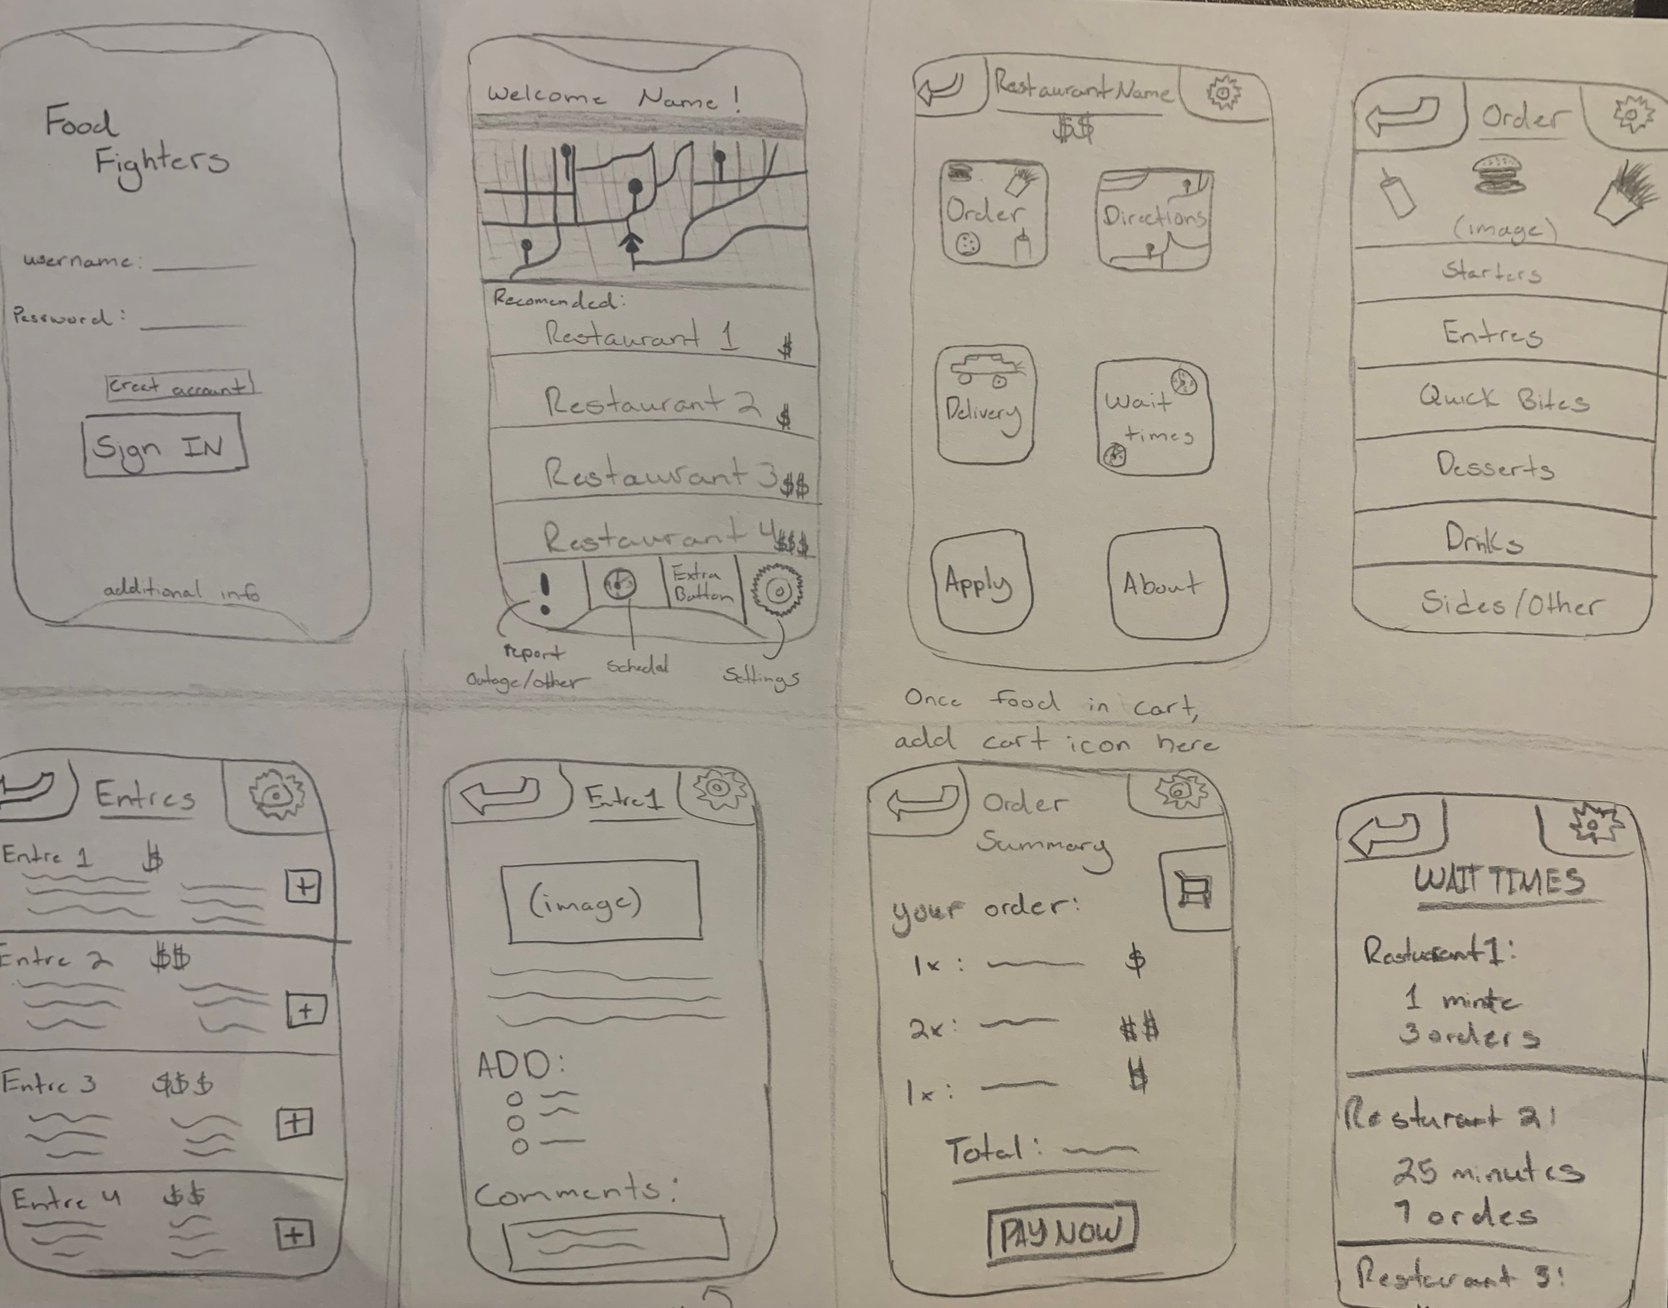 Food
Fighters
username:
Password:
Creat account
Sign IN
additional info
Welcome Name!
Recomended:
Restaurant 1 $
Restaurant 2 $
Restaurant 3 $$
Restaurant 4 $$$
!
Extra
Button
report
outage/other
Schedal
Settings
Restaurant Name
$$
Order
Directions
Delivery
Wait
times
Apply
About
Order
(image)
Starters
Entres
Quick Bites
Desserts
Drinks
Sides/Other
Entres
Entre 1 $
+
Entre 2 $$
+
Entre 3 $$$
+
Entre 4 $$
+
Entre 1
(image)
ADD:
Comments:
Once food in cart,
add cart icon here
Order
Summary
your order:
1x: $
2x: $$
1x: $
Total:
PAY NOW
WAIT TIMES
Resturant 1:
1 minte
3 orders
Resturant 2:
25 minutes
7 ordes
Resturant 3: